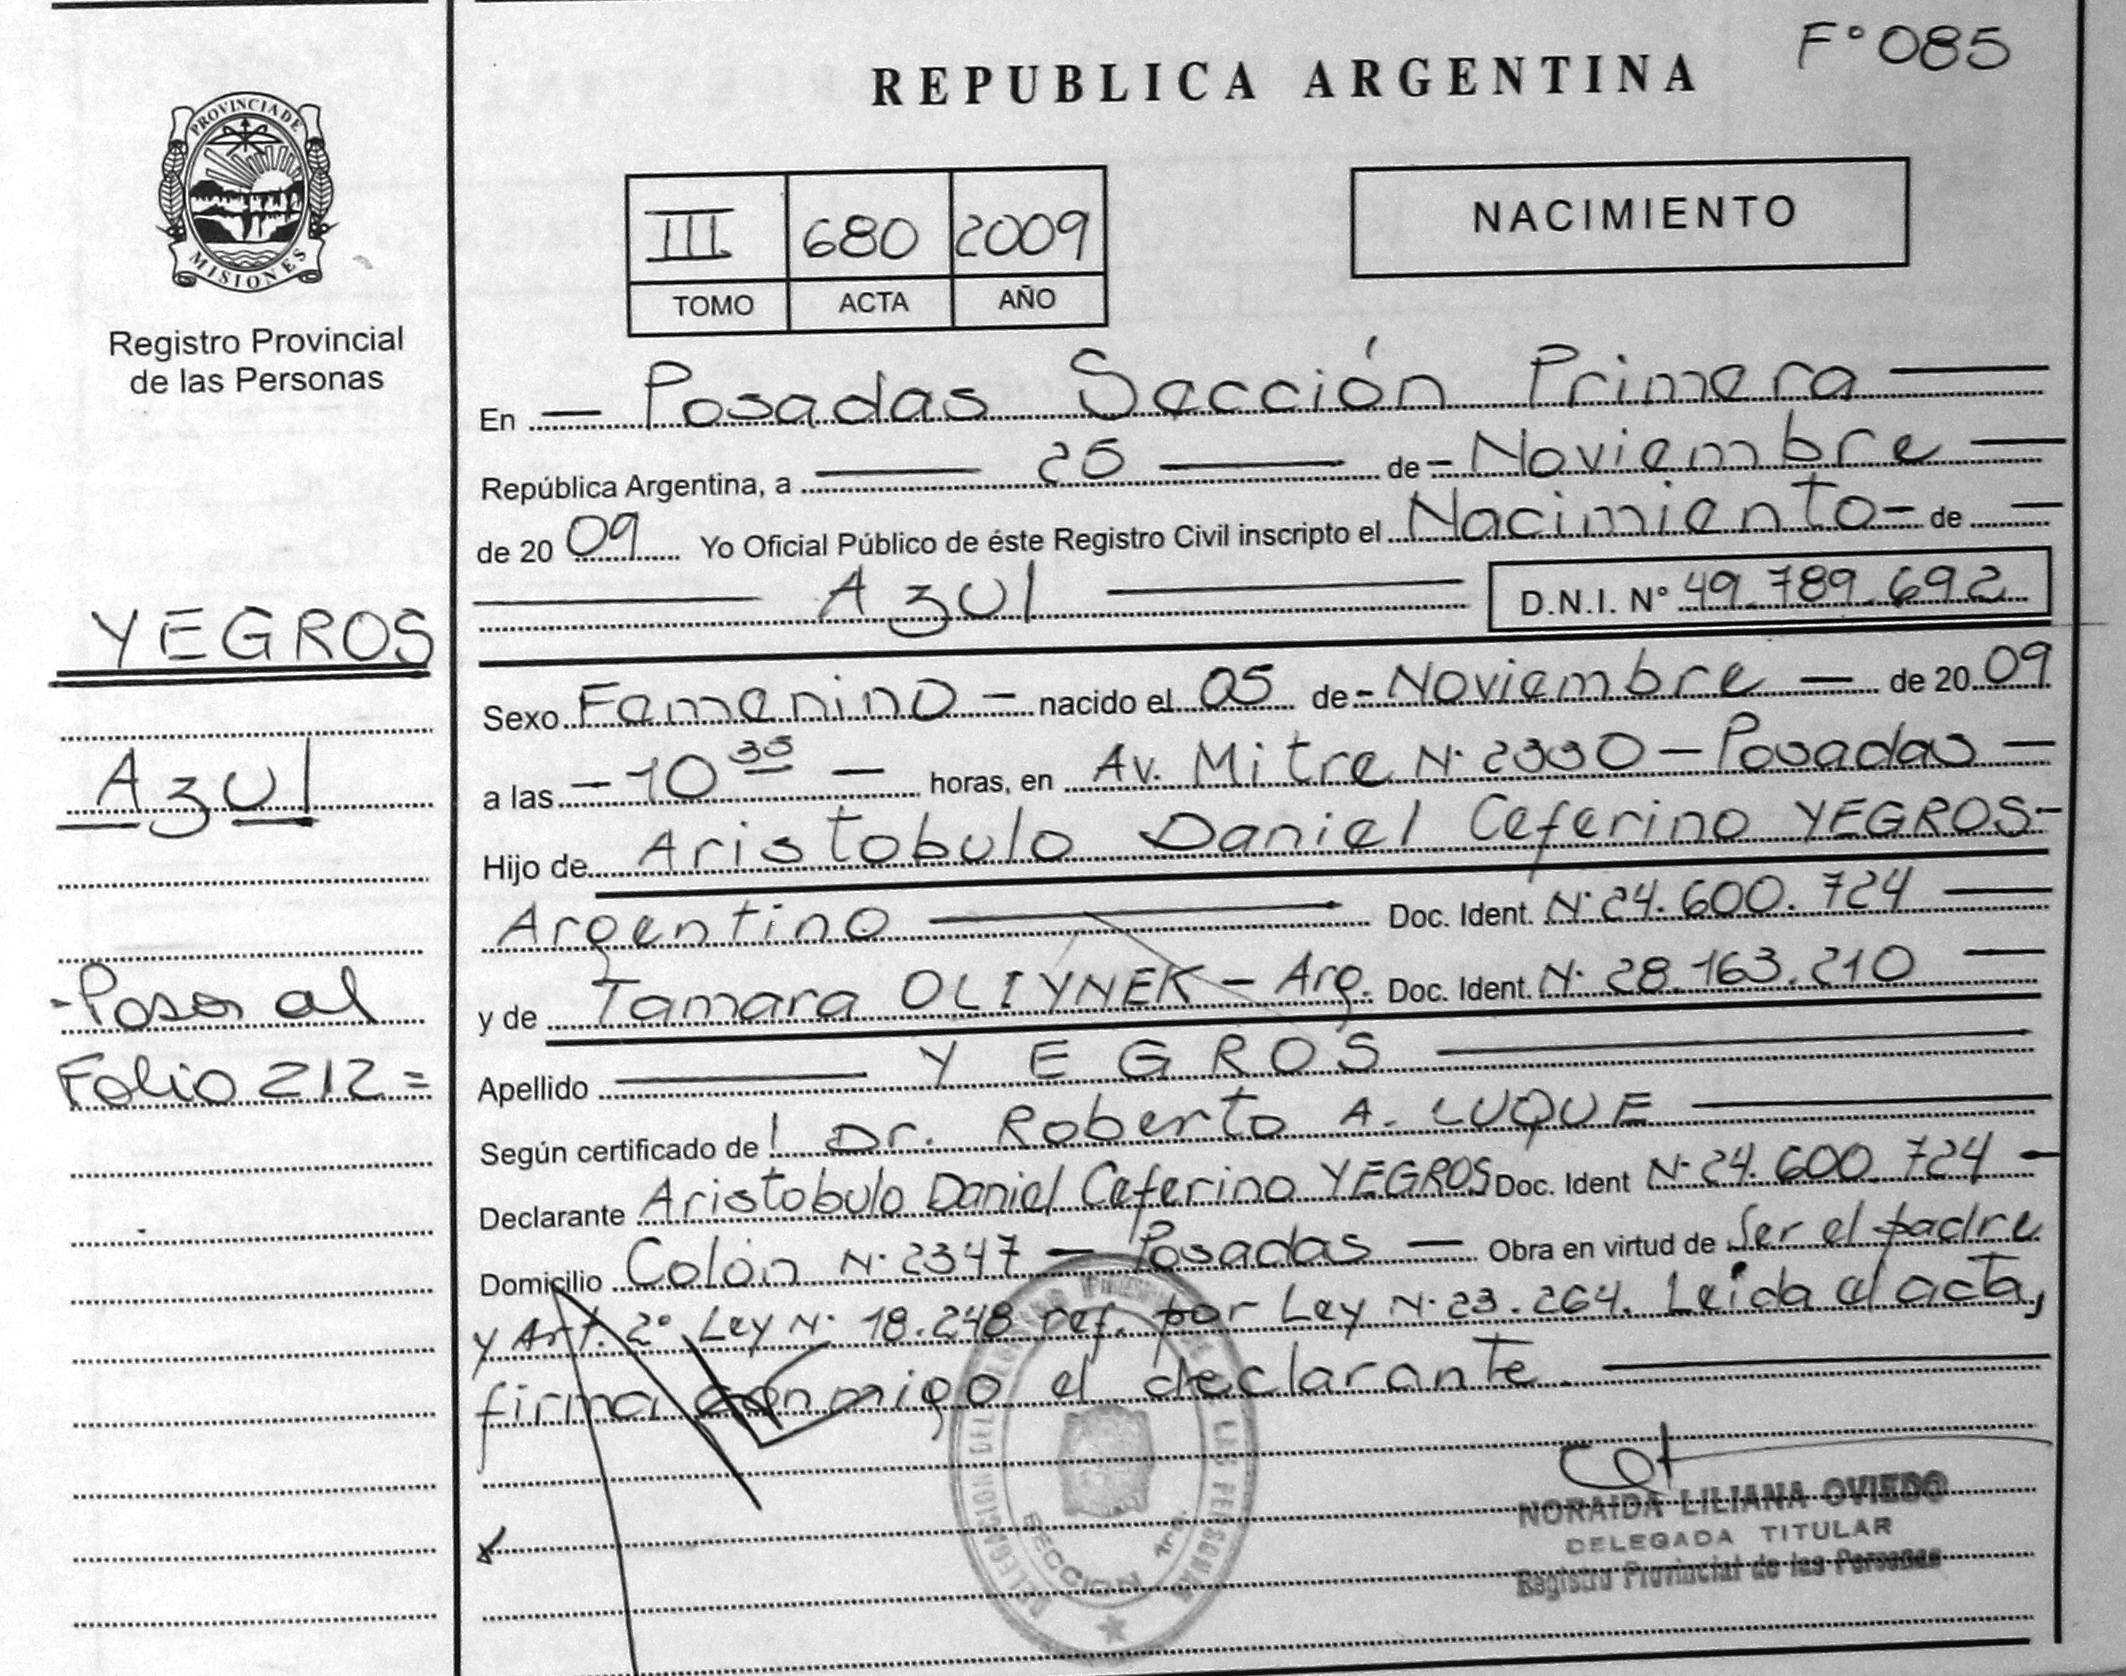 F° 085
REPUBLICA ARGENTINA
PROVINCIA DE
MISIONES
Registro Provincial
de las Personas
III 680 2009
TOMO ACTA AÑO
NACIMIENTO
En — Posadas Sección Primera —
República Argentina, a — 25 — de - Noviembre —
de 20 09 Yo Oficial Público de éste Registro Civil inscripto el Nacimiento - de —
— Azul — D.N.I. N° 49.789.692
YEGROS
Azul
- Pasa al
Folio 212 =
Sexo Femenino — nacido el 05 de - Noviembre — de 20 09
a las — 10 35 — horas, en Av. Mitre N° 2330 — Posadas —
Hijo de Aristobulo Daniel Ceferino YEGROS -
Argentino — Doc. Ident. N° 24.600.724 —
y de Tamara OLIYNEK - Arg. Doc. Ident. N° 28.163.210 —
Apellido — YEGROS —
Según certificado de l Dr. Roberto A. LUQUE —
Declarante Aristobulo Daniel Ceferino YEGROS Doc. Ident N° 24.600.724 —
Domicilio Colón N° 2347 — Posadas — Obra en virtud de Ser el padre
y Art. 2° Ley N° 18.248 ref. por Ley N° 23.264. Leida el acta,
firma conmigo el declarante. —
SECCION 1ra.
NORAIDA LILIANA OVIEDO
DELEGADA TITULAR
Registro Provincial de las Personas